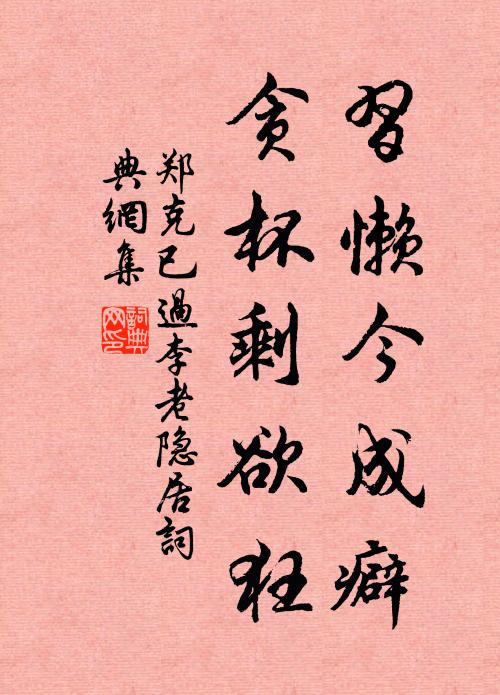 習懒今成癖
贪杯剩欲狂
郑克己過李老隐居詞
典網集
詞典
网印